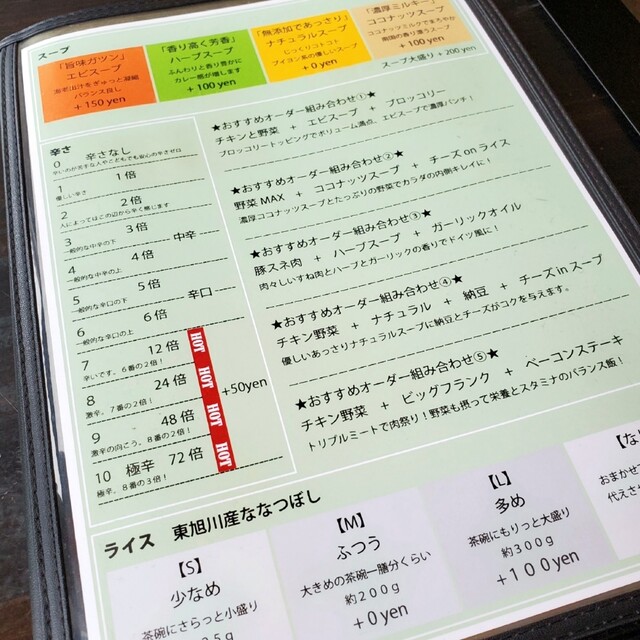 スープ
「旨味ガツン」
エビスープ
バランス良し
+150 yen
「香り高く芳香」
ハーブスープ
ふんわりと香り豊かに
カレー感が増します
+100 yen
「無添加であっさり」
ナチュラルスープ
じっくりコトコト
ブイヨン風の優しいスープ
+0 yen
「濃厚ミルキー」
ココナッツスープ
ココナッツミルクでまろやか
南国の香り漂うスープ
+100 yen
スープ大盛り +200 yen
辛さ
0 辛さなし
辛いのが苦手な人やこどもでも安心の辛さゼロ
1 1倍
優しい辛さ
2 2倍
人によってはこの辺から辛く感じます
3 3倍
一般的な中辛の下
中辛
4 4倍
一般的な中辛の上
5 5倍
一般的な辛口の下
辛口
6 6倍
一般的な辛口の上
7 12倍
辛いです。6番の2倍！
8 24倍
激辛。7番の2倍！
9 48倍
激辛の向こう。8番の2倍！
10 極辛 72倍
極辛。8番の3倍！
HOT HOT HOT HOT
+50yen
★おすすめオーダー組み合わせ①★
チキンと野菜 + エビスープ + ブロッコリー
ブロッコリートッピングでボリューム満点、エビスープで濃厚パンチ！
★おすすめオーダー組み合わせ②★
野菜MAX + ココナッツスープ + チーズonライス
濃厚ココナッツスープとたっぷりの野菜でカラダの内側キレイに！
★おすすめオーダー組み合わせ③★
豚スネ肉 + ハーブスープ + ガーリックオイル
肉々しいすね肉とハーブとガーリックの香りでドイツ風に！
★おすすめオーダー組み合わせ④★
チキン野菜 + ナチュラル + 納豆 + チーズinスープ
優しいあっさりナチュラルスープに納豆とチーズがコクを与えます。
★おすすめオーダー組み合わせ⑤★
チキン野菜 + ビッグフランク + ベーコンステーキ
トリプルミートで肉祭り！野菜も摂って栄養とスタミナのバランス飯！
ライス 東旭川産ななつぼし
【S】
少なめ
茶碗にさらっと小盛り
【M】
ふつう
大きめの茶碗一膳分くらい
約200g
+0yen
【L】
多め
茶碗にもりっと大盛り
約300g
+100yen
【な
おまかせ
代えさ